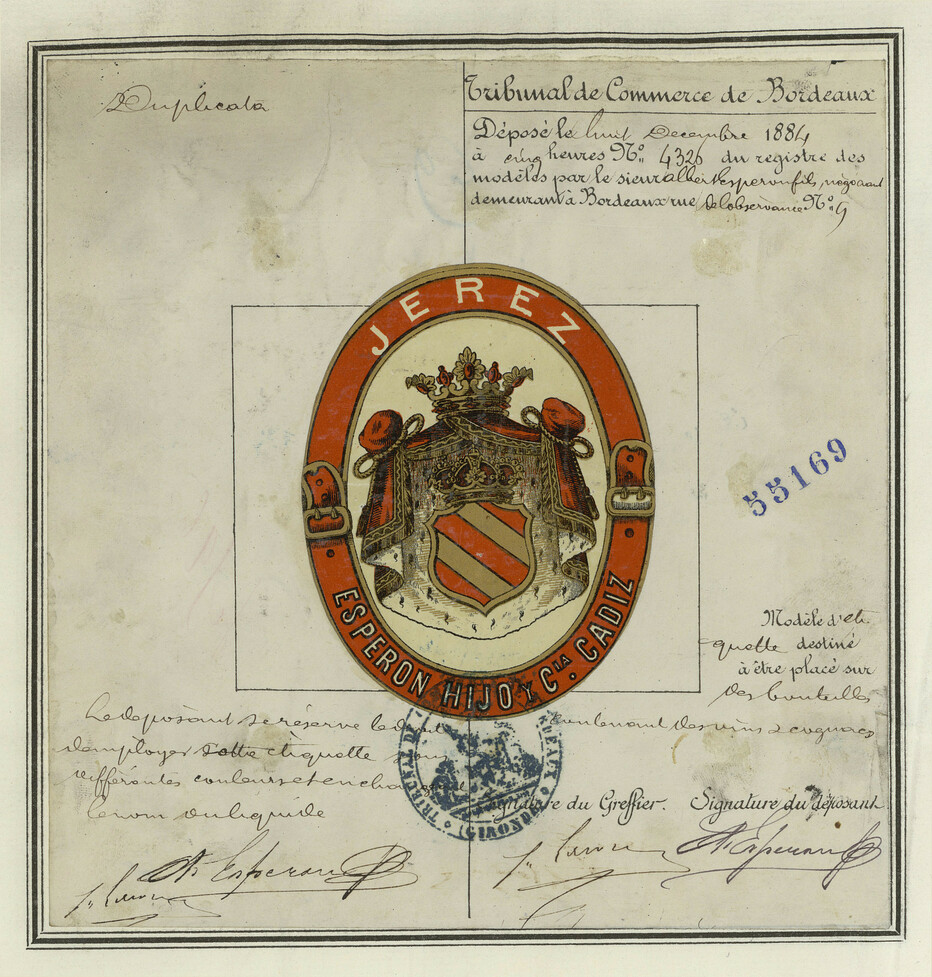 Duplicata
Tribunal de Commerce de Bordeaux
Déposé le huit Decembre 1884
à cinq heures Nº 4326 du registre des
modèles par le sieur albert Esperon fils, négociant
demeurant à Bordeaux rue de l'observance Nº 4
JEREZ
ESPERON HIJO Y Cia. CADIZ
55169
Modèle d'eti
quette destiné
à être placé sur
des bouteilles
contenant des vins & cognacs
Le deposant se réserve le droit
d'employer cette étiquette sous
différentes couleurs et en changeant
le nom du liquide
TRIBUNAL DE
BORDEAUX
(GIRONDE)
Signature du Greffier. Signature du déposant
A Esperon
A Esperon